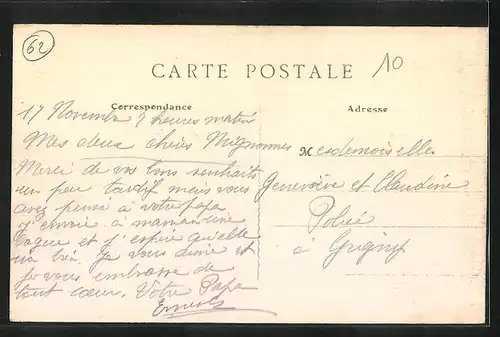 62
10
CARTE POSTALE
Correspondance
Adresse
17 Novembre 7 heures matin
Mes deux chères Mignonnes
Merci de vos bons souhaits
un peu tardif mais vous
avez pensé à votre papa
j'envoie à maman une
bague et j'espère qu'elle
ira bien. Je vous
je vous embrasse de
tout cœur. Votre Papa
Mesdemoiselles
Geneviève et Claudine
à Grigny